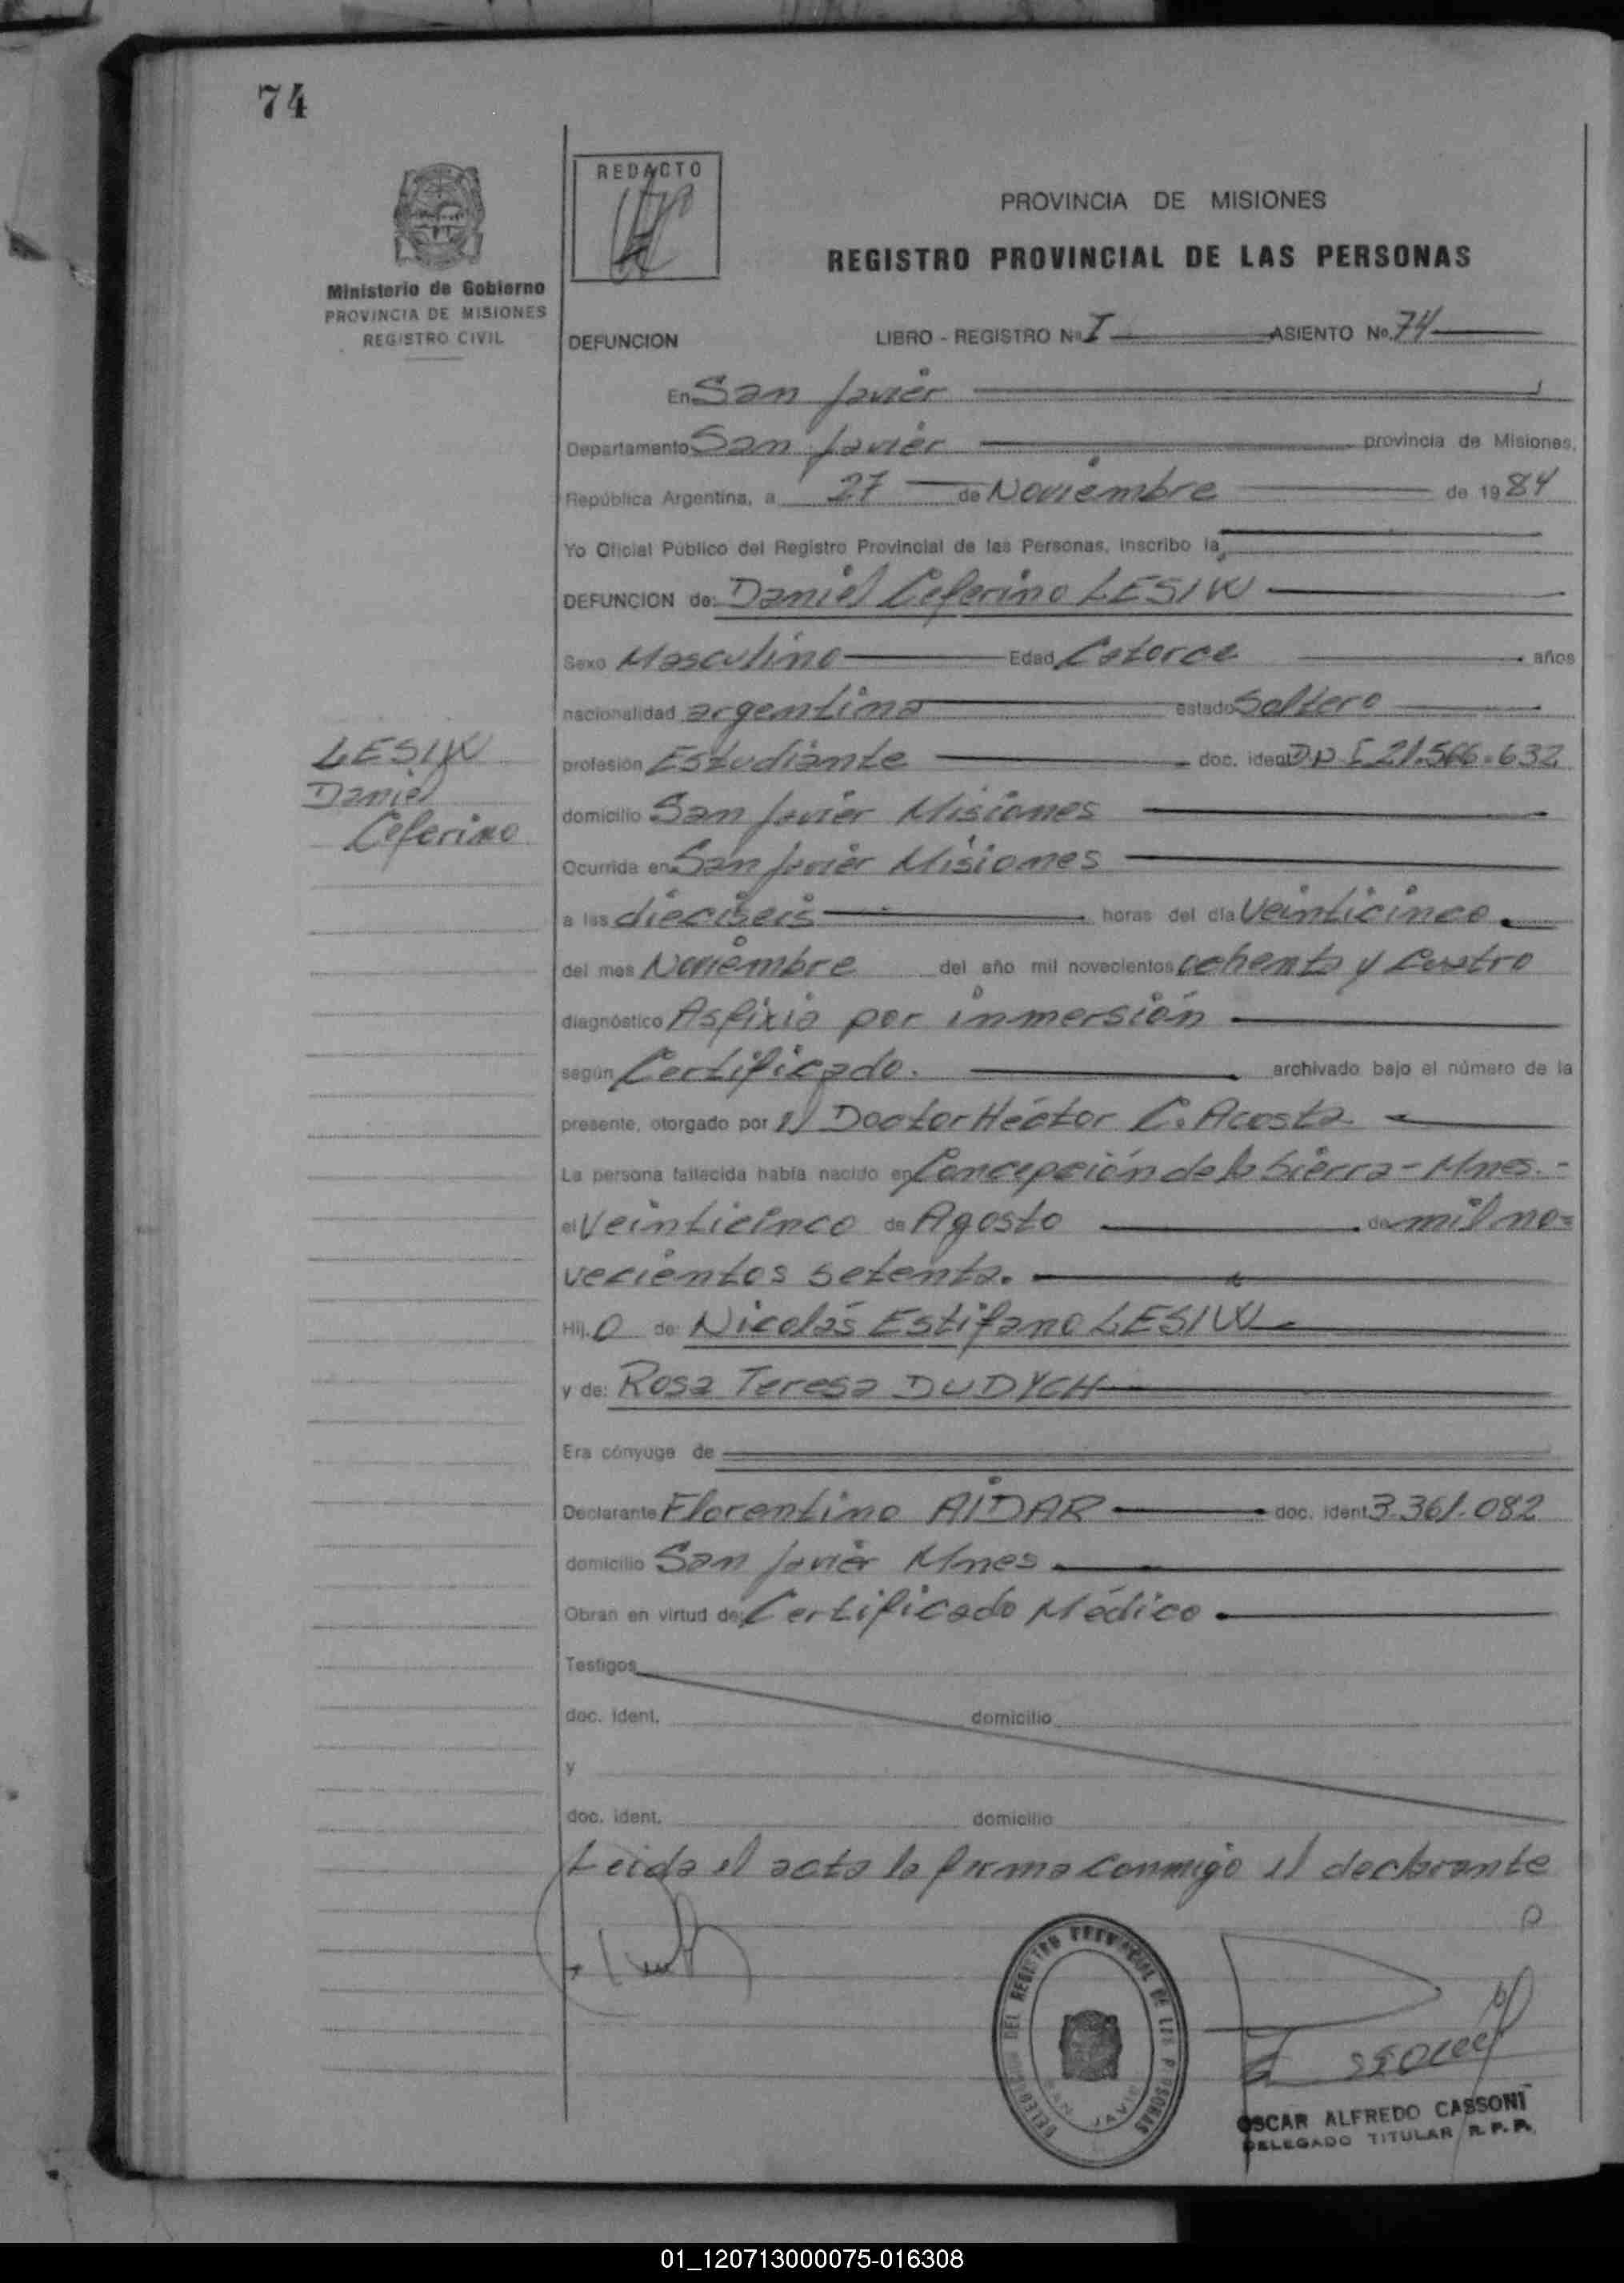 74
REDACTO
PROVINCIA DE MISIONES
REGISTRO PROVINCIAL DE LAS PERSONAS
Ministerio de Gobierno
PROVINCIA DE MISIONES
REGISTRO CIVIL
DEFUNCION LIBRO - REGISTRO Nº I ASIENTO No. 74
En San Javier
Departamento San Javier provincia de Misiones,
República Argentina, a 27 de Noviembre de 1984
Yo Oficial Público del Registro Provincial de las Personas, inscribo la
DEFUNCION de: Daniel Ceferino LESIW
Sexo Masculino Edad Catorce años
nacionalidad argentina estado Soltero
LESIW
Daniel
Ceferino
profesión Estudiante doc. ident D.N.I 21.566.632
domicilio San Javier Misiones
Ocurrida en San Javier Misiones
a las dieciseis horas del día Veinticinco.
del mes Noviembre del año mil novecientos ochenta y Cuatro
diagnóstico Asfixia por inmersión
según Certificado. archivado bajo el número de la
presente, otorgado por el Doctor Héctor C. Acosta
La persona fallecida había nacido en Concepción de la Sierra - Mnes. -
el Veinticinco de Agosto de mil no=
vecientos setenta.
Hij. o de: Nicolás Estifano LESIW
y de: Rosa Teresa DUDYCH
Era cónyuge de
Declarante Florentino AIDAR doc. ident. 3.361.082
domicilio San Javier Mnes
Obran en virtud de: Certificado Médico
Testigos
doc. ident. domicilio
y
doc. ident. domicilio
Leida el acta la firma conmigo el declarante
REGISTRO PROVINCIAL DE LAS PERSONAS
SAN JAVIER
OSCAR ALFREDO CASSONI
DELEGADO TITULAR R.P.P.
01_120713000075-016308